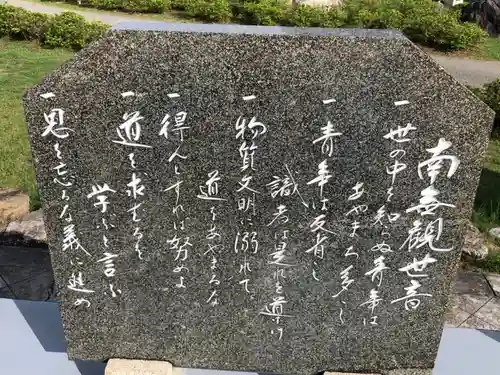 南無観世音
一 世の中を知らぬ青年は
あやまち多し
一 青年は反省し
識者は是れを導け
一 物質文明に溺れて、
道をあやまるな
一 得んとすれば努めよ
一 道を求むるを
学ぶと言ふ
一 恩を忘るな義に進め